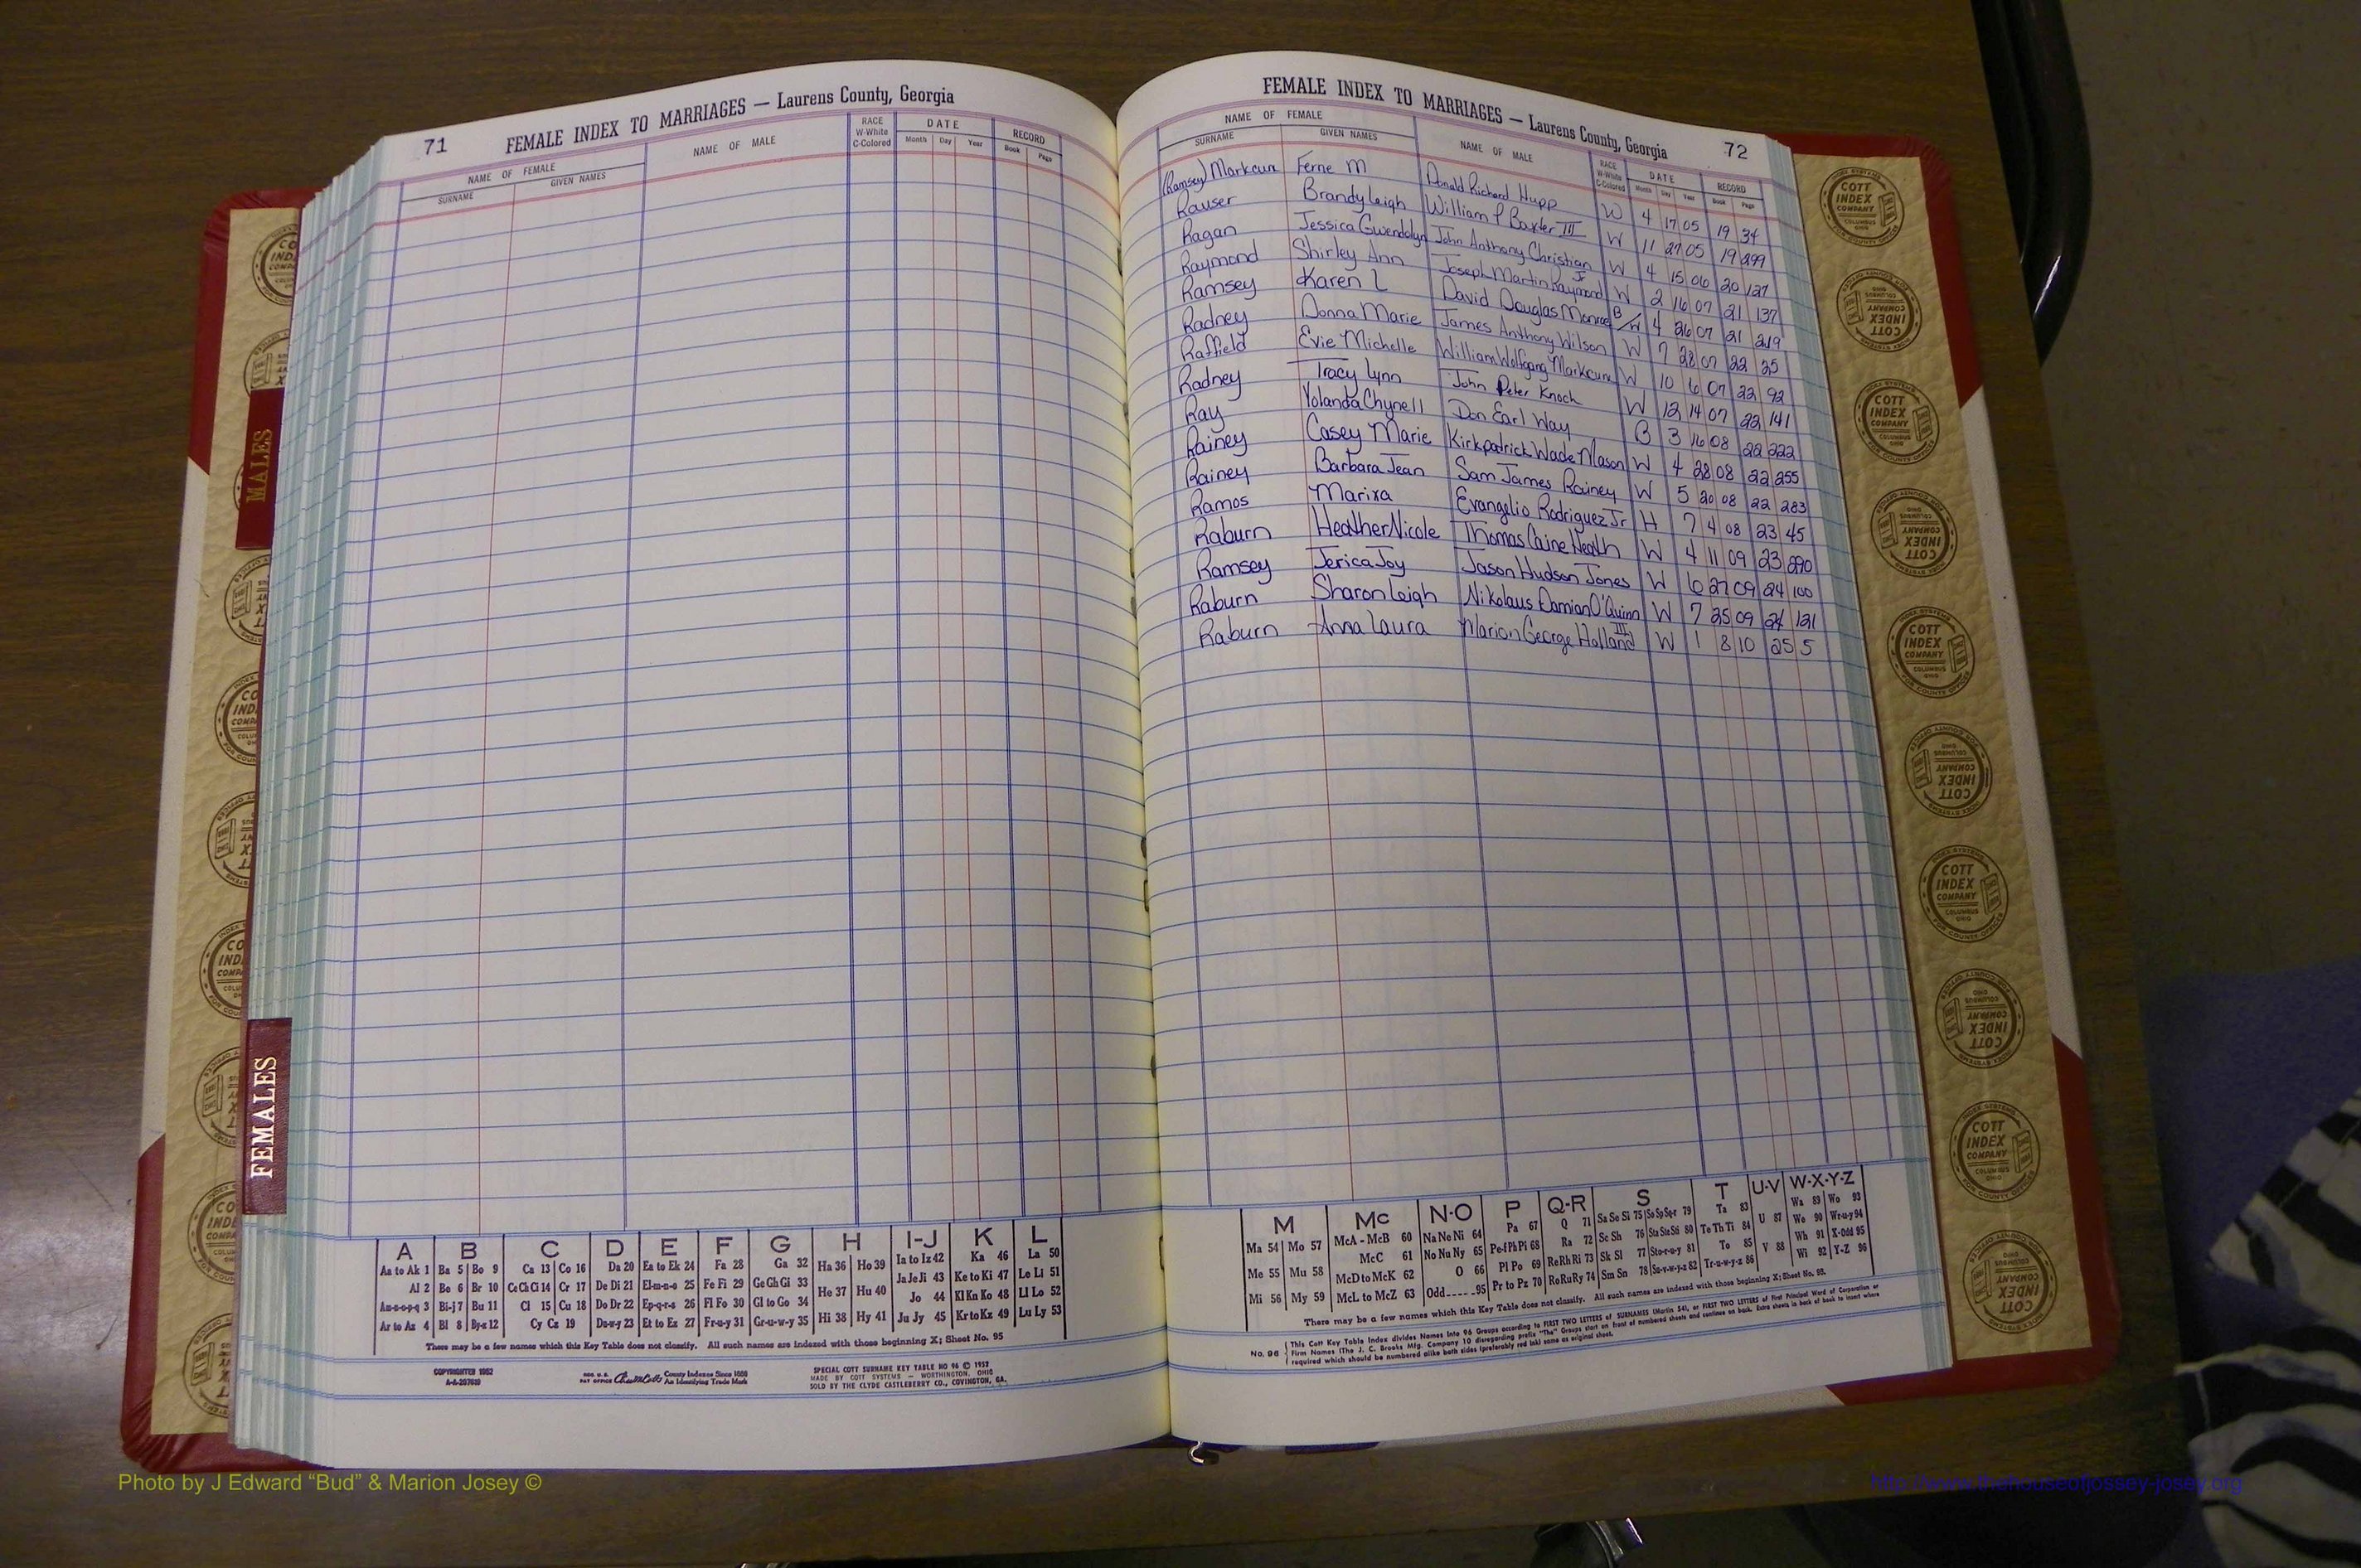 71
FEMALE INDEX TO MARRIAGES — Laurens County, Georgia
NAME OF FEMALE
SURNAME GIVEN NAMES
NAME OF MALE
RACE
W-White
C-Colored
DATE
Month Day Year
RECORD
Book Page
FEMALE INDEX TO MARRIAGES — Laurens County, Georgia
72
NAME OF FEMALE
SURNAME GIVEN NAMES
NAME OF MALE
RACE
W-White
C-Colored
DATE
Month Day Year
RECORD
Book Page
(Ramsey) Markcum Ferne M Donald Richard Hupp W 4 17 05 19 34
Rauser Brandy Leigh William P Baxter III W 11 27 05 19 299
Ragan Jessica Gwendolyn John Anthony Christian W 4 15 06 20 127
Raymond Shirley Ann Joseph Martin Raymond Jr W 2 16 07 21 137
Ramsey Karen L David Douglas Monroe B/W 4 26 07 21 219
Radney Donna Marie James Anthony Wilson W 7 28 07 22 25
Raffield Evie Michelle William Wolfgang Markcum W 10 6 07 22 92
Radney Tracy Lynn John Peter Knoch W 12 14 07 22 141
Ray Yolanda Chynell Don Earl Way B 3 16 08 22 222
Rainey Casey Marie Kirkpatrick Wade Mason W 4 28 08 22 255
Rainey Barbara Jean Sam James Rainey W 5 20 08 22 283
Ramos Marixa Evangelio Rodriguez Jr H 7 4 08 23 45
Raburn Heather Nicole Thomas Caine Heath W 4 11 09 23 290
Ramsey Jerica Joy Jason Hudson Jones W 6 27 09 24 100
Raburn Sharon Leigh Nikolaus Damian O'Quinn W 7 25 09 24 121
Raburn Anna Laura Marion George Holland III W 1 8 10 25 5
MALES
FEMALES
A B C D E F G H I-J K L
Aa to Ak 1 Ba 5 Bo 9 Ca 13 Co 16 Da 20 Ea to Ek 24 Fa 28 Ga 32 Ha 36 Ho 39 Ia to Iz 42 Ka 46 La 50
Al 2 Be 6 Br 10 Ce Ch Ci 14 Cr 17 De Di 21 El-m-n-o 25 Fe Fi 29 Ge Gh Gi 33 He 37 Hu 40 Ja Je Ji 43 Ke to Ki 47 Le Li 51
Am-n-o-p-q 3 Bi-j 7 Bu 11 Cl 15 Cu 18 Do Dr 22 Ep-q-r-s 26 Fl Fo 30 Gl to Go 34 Jo 44 Kl Kn Ko 48 Ll Lo 52
Ar to Az 4 Bl 8 By-z 12 Cy Cz 19 Du-w-y 23 Et to Ez 27 Fr-u-y 31 Gr-u-w-y 35 Hi 38 Hy 41 Ju Jy 45 Kr to Kz 49 Lu Ly 53
There may be a few names which this Key Table does not classify. All such names are indexed with those beginning X; Sheet No. 95
COPYRIGHTED 1952
A-A-207619
REG. U.S.
PAT OFFICE
County Indexes Since 1888
An Identifying Trade Mark
SPECIAL COTT SURNAME KEY TABLE NO 96 © 1952
MADE BY COTT SYSTEMS — WORTHINGTON, OHIO
SOLD BY THE CLYDE CASTLEBERRY CO., COVINGTON, GA.
M Mc N-O P Q-R S T U-V W-X-Y-Z
Ma 54 Mo 57 McA - McB 60 Na Ne Ni 64 Pa 67 Q 71 Sa Se Si 75 So Sp Sq-r 79 Ta 83 U 87 Wa 89 Wo 93
Me 55 Mu 58 McC 61 No Nu Ny 65 Pe-f Ph Pi 68 Ra 72 Sc Sh 76 Sta Ste Sti 80 Te Th Ti 84 V 88 We 90 Wr-u-y 94
McD to McK 62 O 66 Pl Po 69 Re Rh Ri 73 Sk Sl 77 Sto-r-u-y 81 To 85 Wh 91 X-Odd 95
Mi 56 My 59 McL to McZ 63 Odd-----95 Pr to Pz 70 Ro Ru Ry 74 Sm Sn 78 Su-v-w-y-z 82 Tr-u-w-y-z 86 Wi 92 Y-Z 96
There may be a few names which this Key Table does not classify. All such names are indexed with those beginning X; Sheet No. 95.
No. 96
This Cott Key Table Index divides Names into 96 Groups according to FIRST TWO LETTERS of SURNAMES (Martin 54), or FIRST TWO LETTERS of First Principal Word of Corporation or
Firm Names (The J. C. Brooks Mfg. Company 10 disregarding prefix "The" Groups start on front of numbered sheets and continue on back. Extra sheets in back of book to insert where
required which should be numbered alike both sides (preferably red ink) same as original sheet.
COTT
INDEX
COMPANY
COLUMBUS
OHIO
INDEX SYSTEMS
FOR COUNTY OFFICES
Photo by J Edward “Bud” & Marion Josey ©
http://www.thehouseofjossey-josey.org